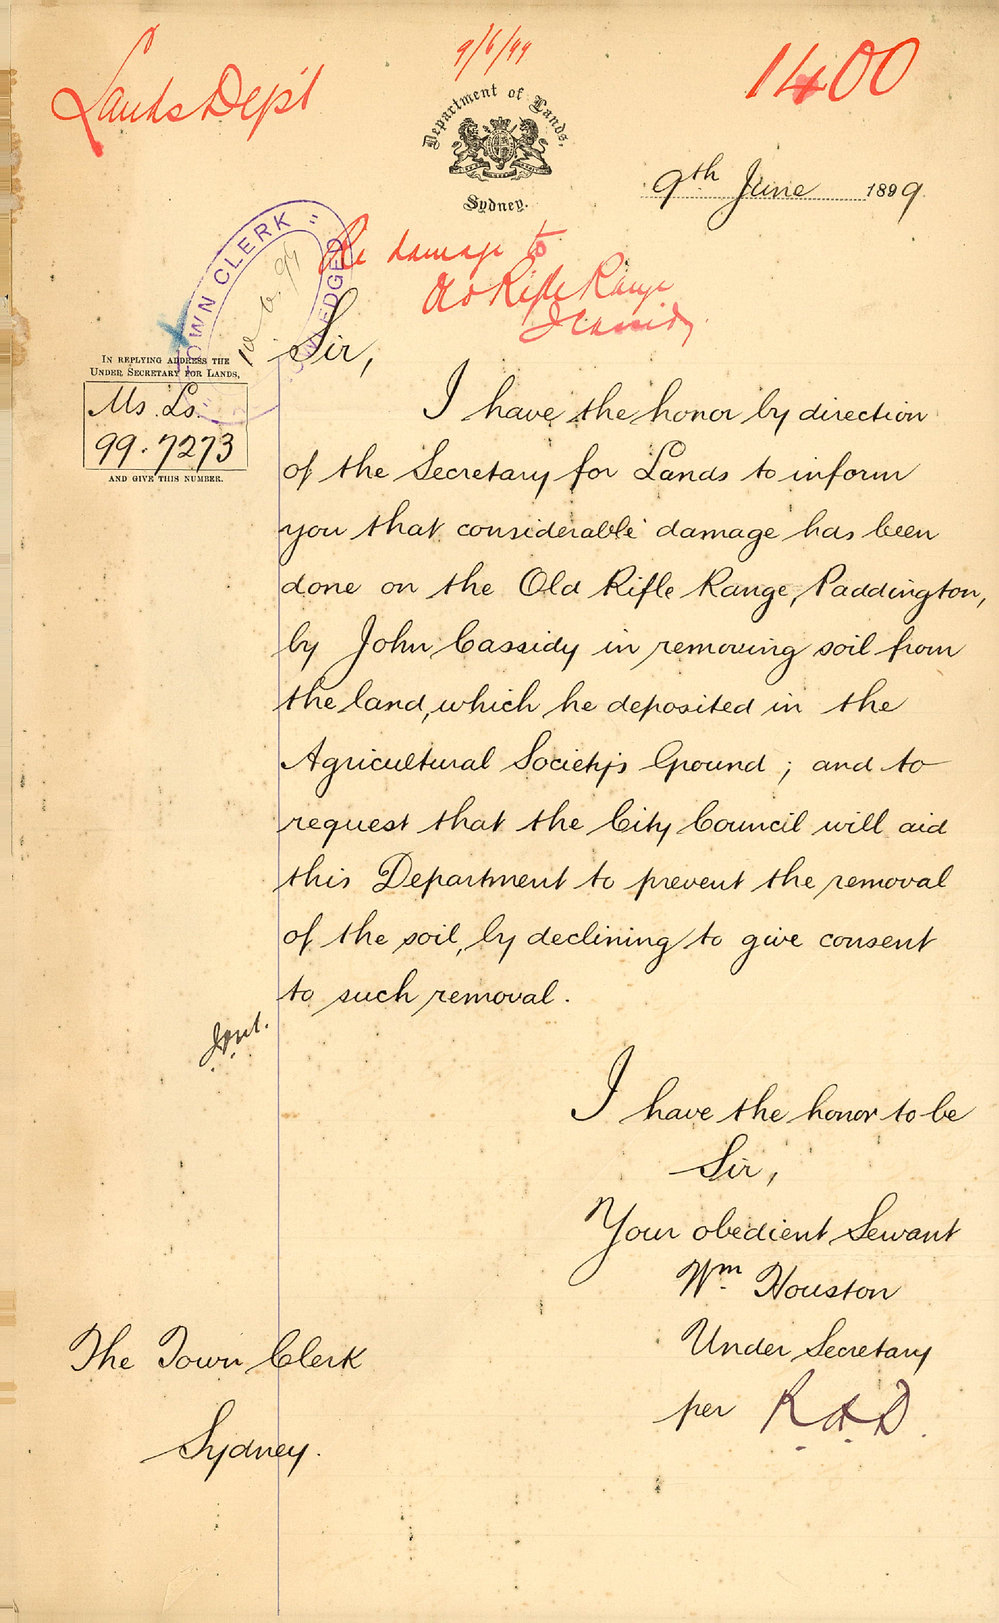 Lands Dep't
9/6/99
1400
Department of Lands,
Sydney.
9th June 1899.
TOWN CLERK
10.6.99
Re damage to
Old Rifle Range
J Cassidy
IN REPLYING ADDRESS THE
UNDER SECRETARY FOR LANDS,
Ms. Ls.
99.7273
AND GIVE THIS NUMBER.
Sir,
I have the honor by direction
of the Secretary for Lands to inform
you that considerable damage has been
done on the Old Rifle Range, Paddington,
by John Cassidy in removing soil from
the land, which he deposited in the
Agricultural Society's Ground; and to
request that the City Council will aid
this Department to prevent the removal
of the soil, by declining to give consent
to such removal.
I have the honor to be
Sir,
Your obedient Servant
Wm Houston
Under Secretary
per R.A.D.
The Town Clerk
Sydney.